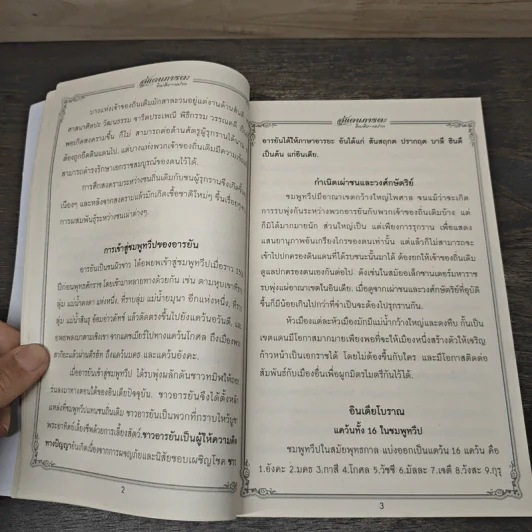 บางแห่งเจ้าของถิ่นเดิมมักสาละวนอยู่แต่งานด้านสันติ
ศาสนาศิลปะ วัฒนธรรม จารีตประเพณี พิธีกรรม วรรณคดี
ก่อสงครามขึ้น ก็ไม่ สามารถต่อต้านศัตรูผู้รุกรานได้นาน
ต้องถูกยึดดินแดนไป แต่บางแห่งพวกเจ้าของถิ่นเดิมมีความเข้ม
สามารถดำรงรักษาเอกราชสมบูรณ์ของตนไว้ได้
การศึกสงครามระหว่างชนถิ่นเดิมกับชนผู้รุกรานจึงเกิดขึ้น
เนืองๆ และหลังจากสงครามแล้วมักเกิดเชื้อชาติใหม่ๆ ขึ้นเรื่อยๆ
การผสมพันธุ์ระหว่างชนเผ่าต่างๆ
การเข้าสู่ชมพูทวีปของอารยัน
อารยันเป็นชนผิวขาว ได้อพยพเข้าสู่ชมพูทวีปเมื่อราว
ปีก่อนพุทธศักราช โดยเข้ามาหลายทางด้วยกัน เช่น ตามหุบเขา
ลุ่ม แม่น้ำคงคา แห่งหนึ่ง, ที่ราบลุ่ม แม่น้ำยมุนา อีกแห่งหนึ่ง,
ลุ่ม แม่น้ำสินธุ อ้อมอาวทัชร์ แล้วตัดตรงขึ้นไปยังแคว้นอวันตี,
อพยพลงมาตามเชิงเขา จากแคชเมียร์ไปทางแคว้นโกศล ถึงเมือง
ถึงแคว้นมคธ และแคว้นอังคะ
เมื่ออารยันเข้าสู่ชมพูทวีป ได้รบพุ่งผลักดันชาวทมิฬให้ถอย
ร่นลงมาทางตอนใต้ของอินเดียปัจจุบัน ชาวอารยันจึงได้ตั้งหลัก
แหล่งที่ชมพูทวีปแทนชนถิ่นเดิม ชาวอารยันเป็นพวกที่กราบไหว้บูชา
พระอาทิตย์ เลี้ยงชีพด้วยการเลี้ยงสัตว์ ชาวอารยันเป็นผู้ให้ความคิด
ทางปัญญาอันเกิดเนื่องจากการผจญภัยและนิสัยชอบเผชิญโชค ชาว
2
อารยันได้ให้ภาษาอารยะ อันได้แก่ สันสฤกต ปรากฤต บาลี ฮินดี
เป็นต้น แก่อินเดีย.
กำเนิดเผ่าชนและวงศ์กษัตริย์
ชมพูทวีปมีอาณาเขตกว้างใหญ่ไพศาล ชนแม้ว่าจะเกิด
การรบพุ่งกันระหว่างพวกอารยันกับพวกเจ้าของถิ่นเดิมบ้าง แต่
ก็มิได้มากมายนัก ส่วนใหญ่เป็น แต่เพียงการรุกราน เพื่อแสดง
แสนยานุภาพอันเกรียงไกรของตนเท่านั้น แต่แล้วก็ไม่สามารถจะ
เข้าไปปกครองดินแดนที่ได้รบชนะนั้นมาได้ ต้องยกให้เจ้าของถิ่นเดิม
ดูแลปกครองตนเองกันต่อไป ดังเช่นในสมัยอเล็กซานเดอร์มหาราช
รบพุ่งแผ่อาณาเขตในอินเดีย เมื่อดูจากเผ่าชนและวงศ์กษัตริย์ที่อุบัติ
ขึ้นก็มีน้อยเกินไปกว่าที่จำเป็นจะต้องไปรุกรานกัน
หัวเมืองแต่ละหัวเมืองมักมีแม่น้ำกว้างใหญ่และดงทึบ กั้นเป็น
เขตแดนมีโอกาสมากมายเพียงพอที่จะให้เมืองหนึ่งสร้างตัวให้เจริญ
ก้าวหน้าเป็นเอกราชได้ โดยไม่ต้องขึ้นกับใคร และมีโอกาสติดต่อ
สัมพันธ์กับเมืองอื่นเพื่อผูกมิตรไมตรีกันไว้ได้.
อินเดียโบราณ
แคว้นทั้ง 16 ในชมพูทวีป
ชมพูทวีปในสมัยพุทธกาล แบ่งออกเป็นแคว้น 16 แคว้น คือ
1.อังคะ 2.มคธ 3.กาสี 4.โกศล 5.วัชชี 6.มัลละ 7.เจตี 8.วังสะ 9.กุรุ
3